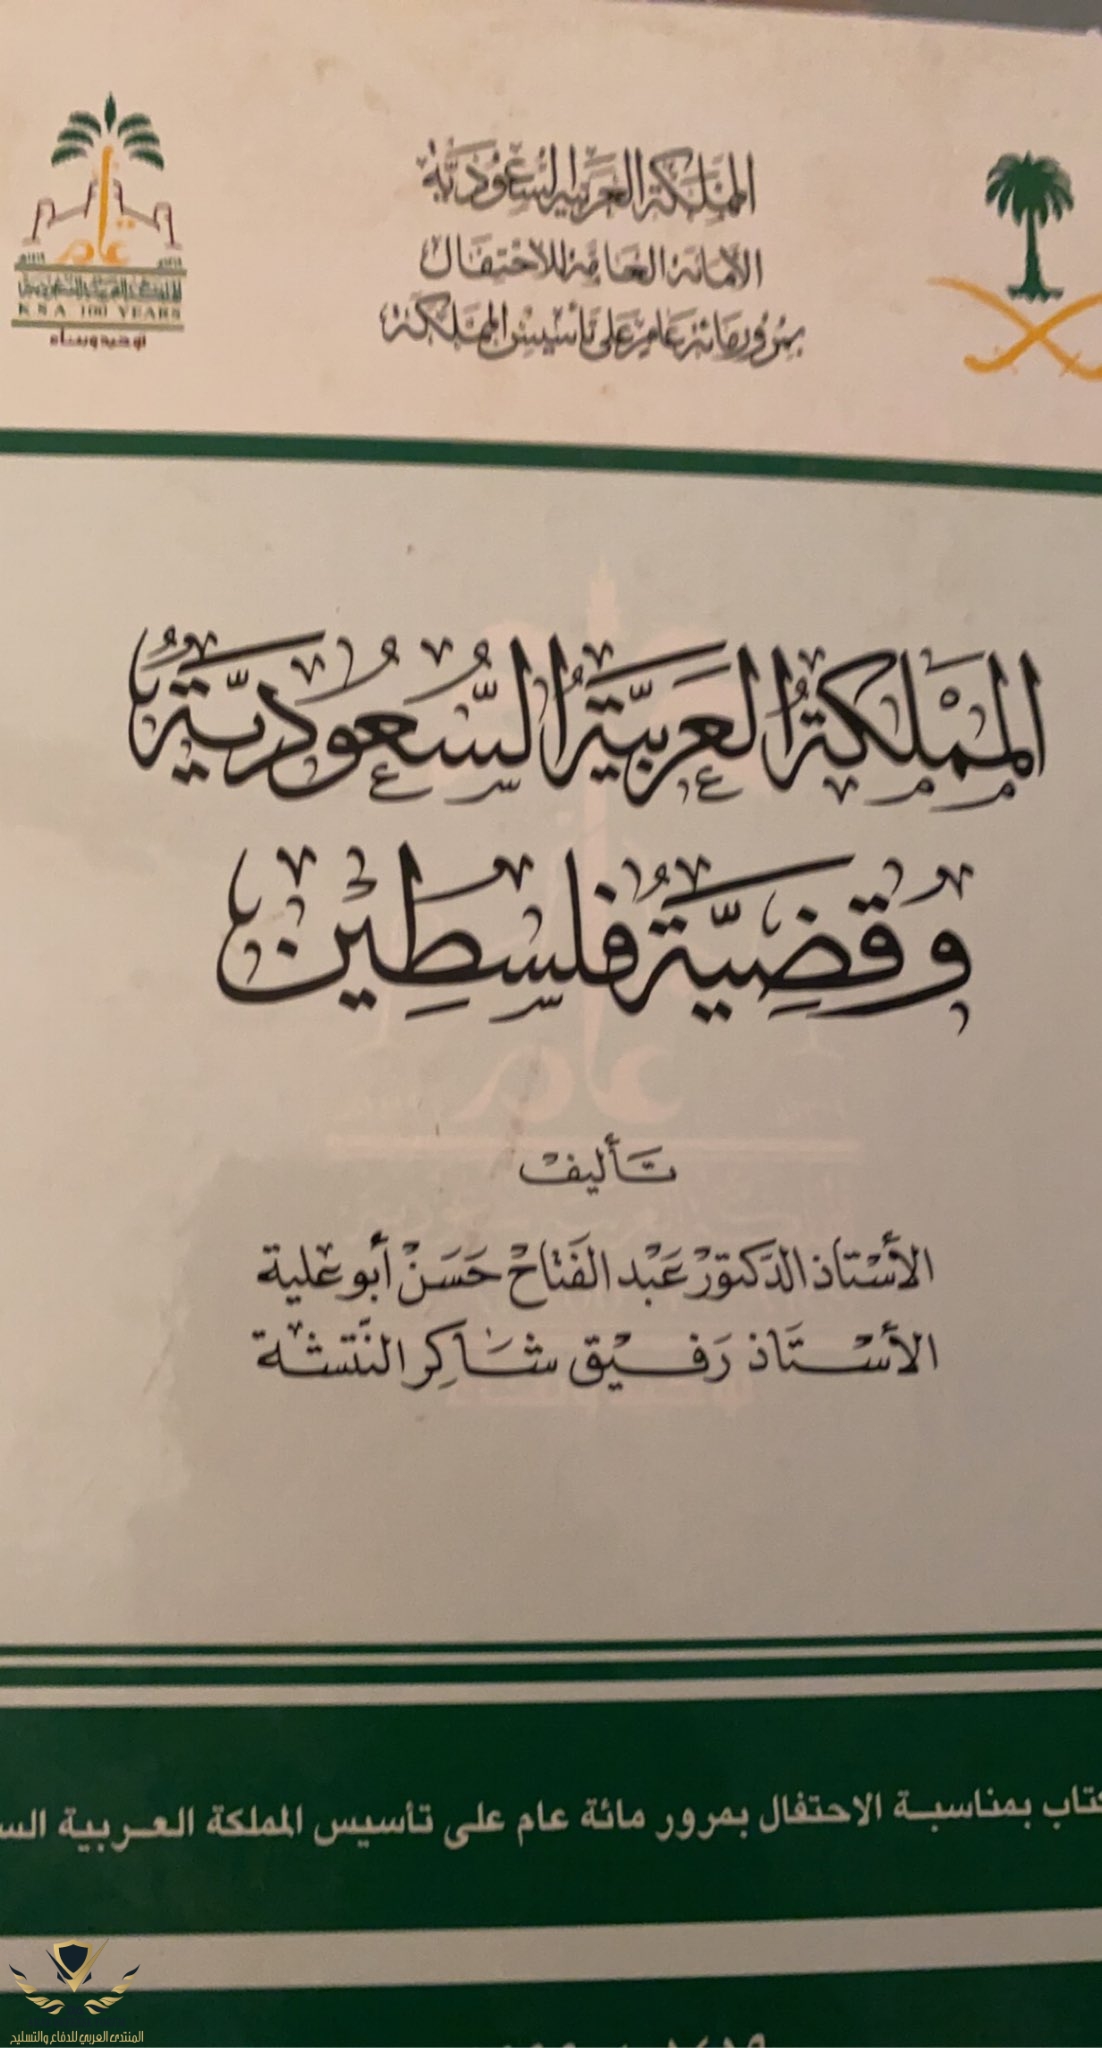 المملكة العربية السعودية
الأمانة العامة للاحتفال
بمرور مائة عام على تأسيس المملكة
عام
K S A 100 YEARS
توحيد وبناء
المَمْلَكَةُ العَرَبِيَّةُ السُّعُودِيَّةُ
وَقَضِيَّةُ فِلَسْطِيْن
تأليف
الأستاذ الدكتور عبد الفتاح حسن أبو علية
الأستاذ رفيق شاكر النتشة
كتاب بمناسبة الاحتفال بمرور مائة عام على تأسيس المملكة العربية الس
المنتدى العربي للدفاع والتسليح